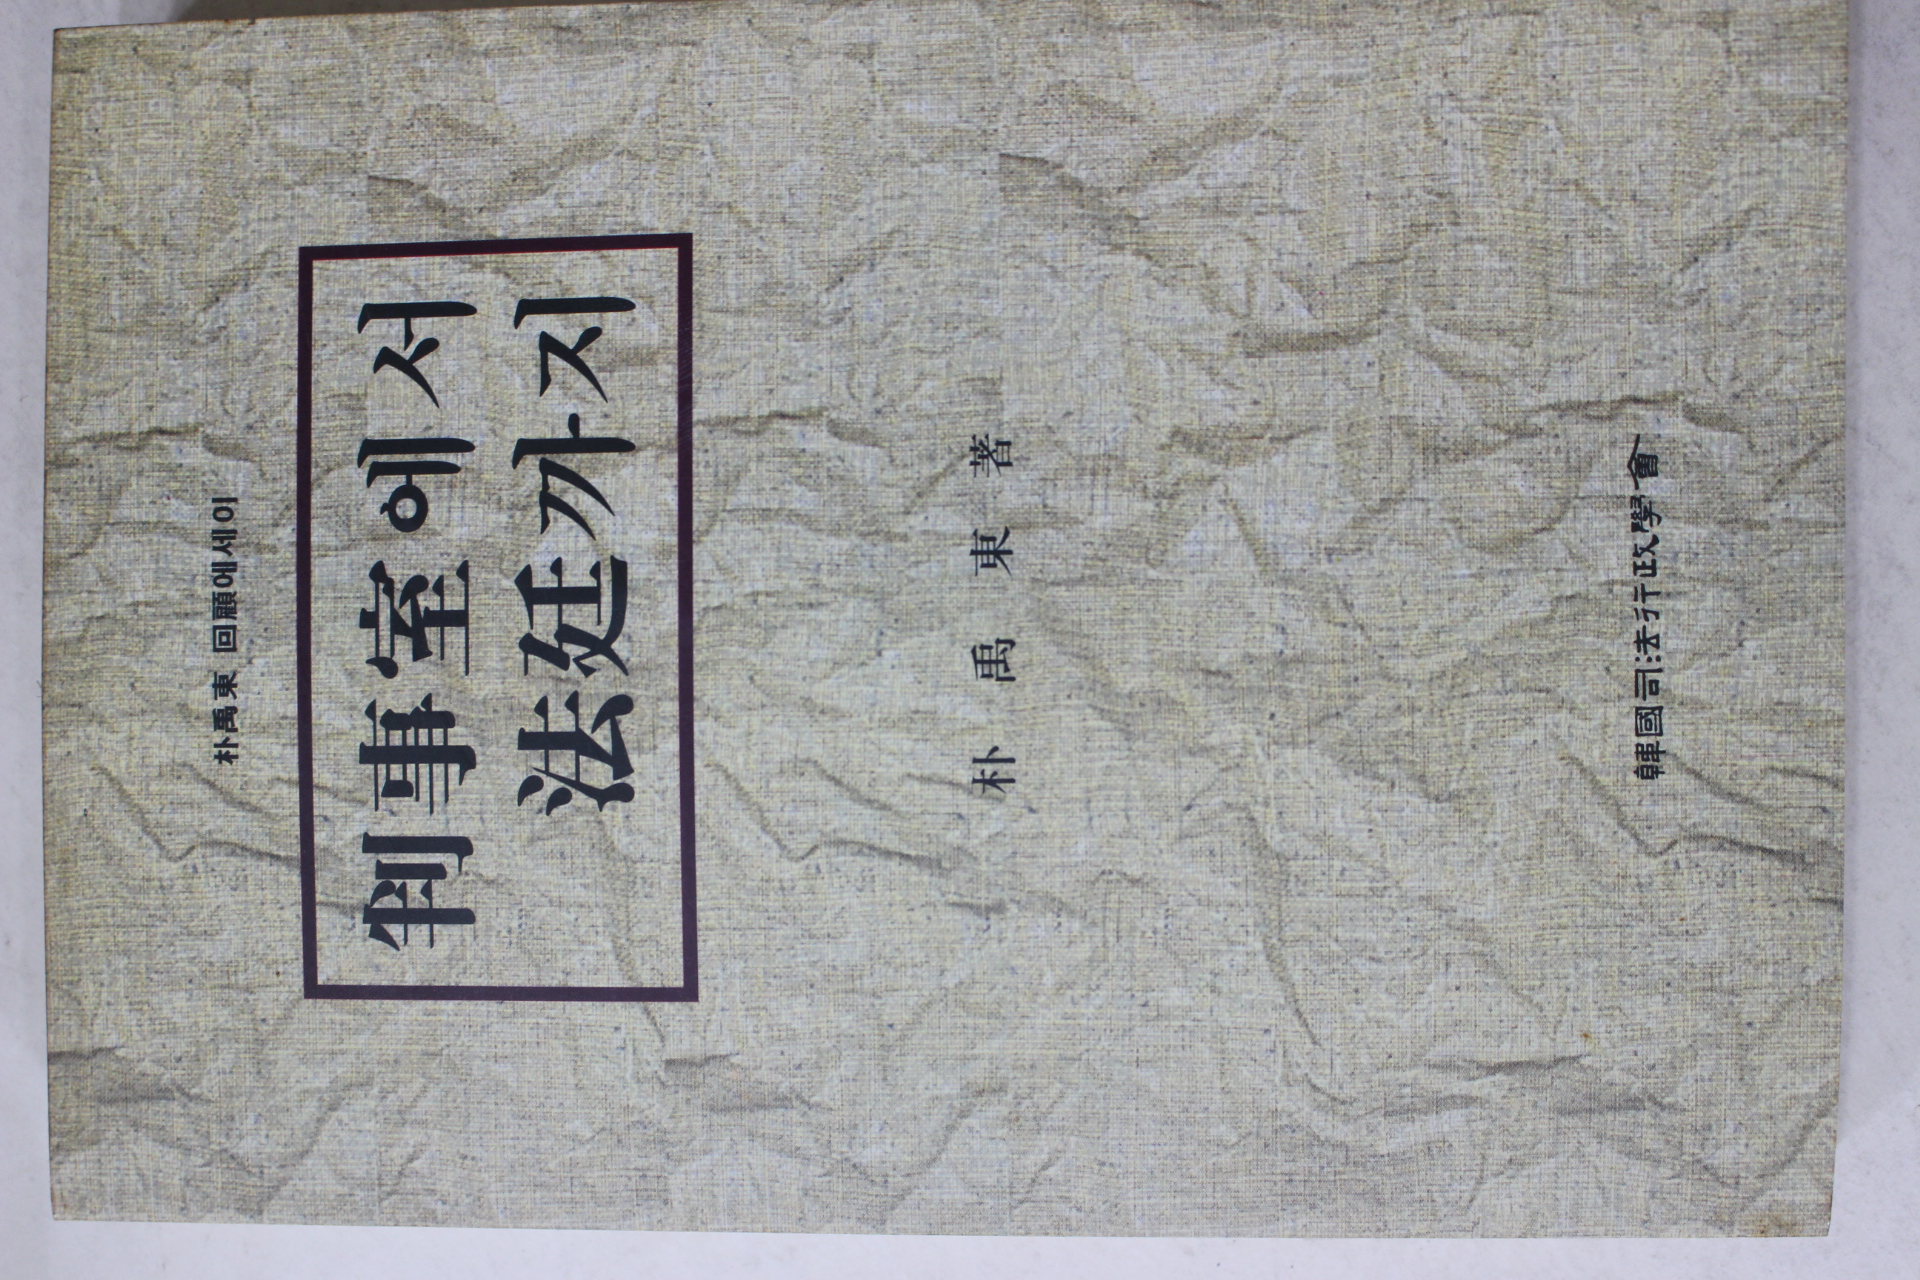 朴禹東 回顧에세이
判事室에서
法廷까지
朴禹東 著
韓國司法行政學會